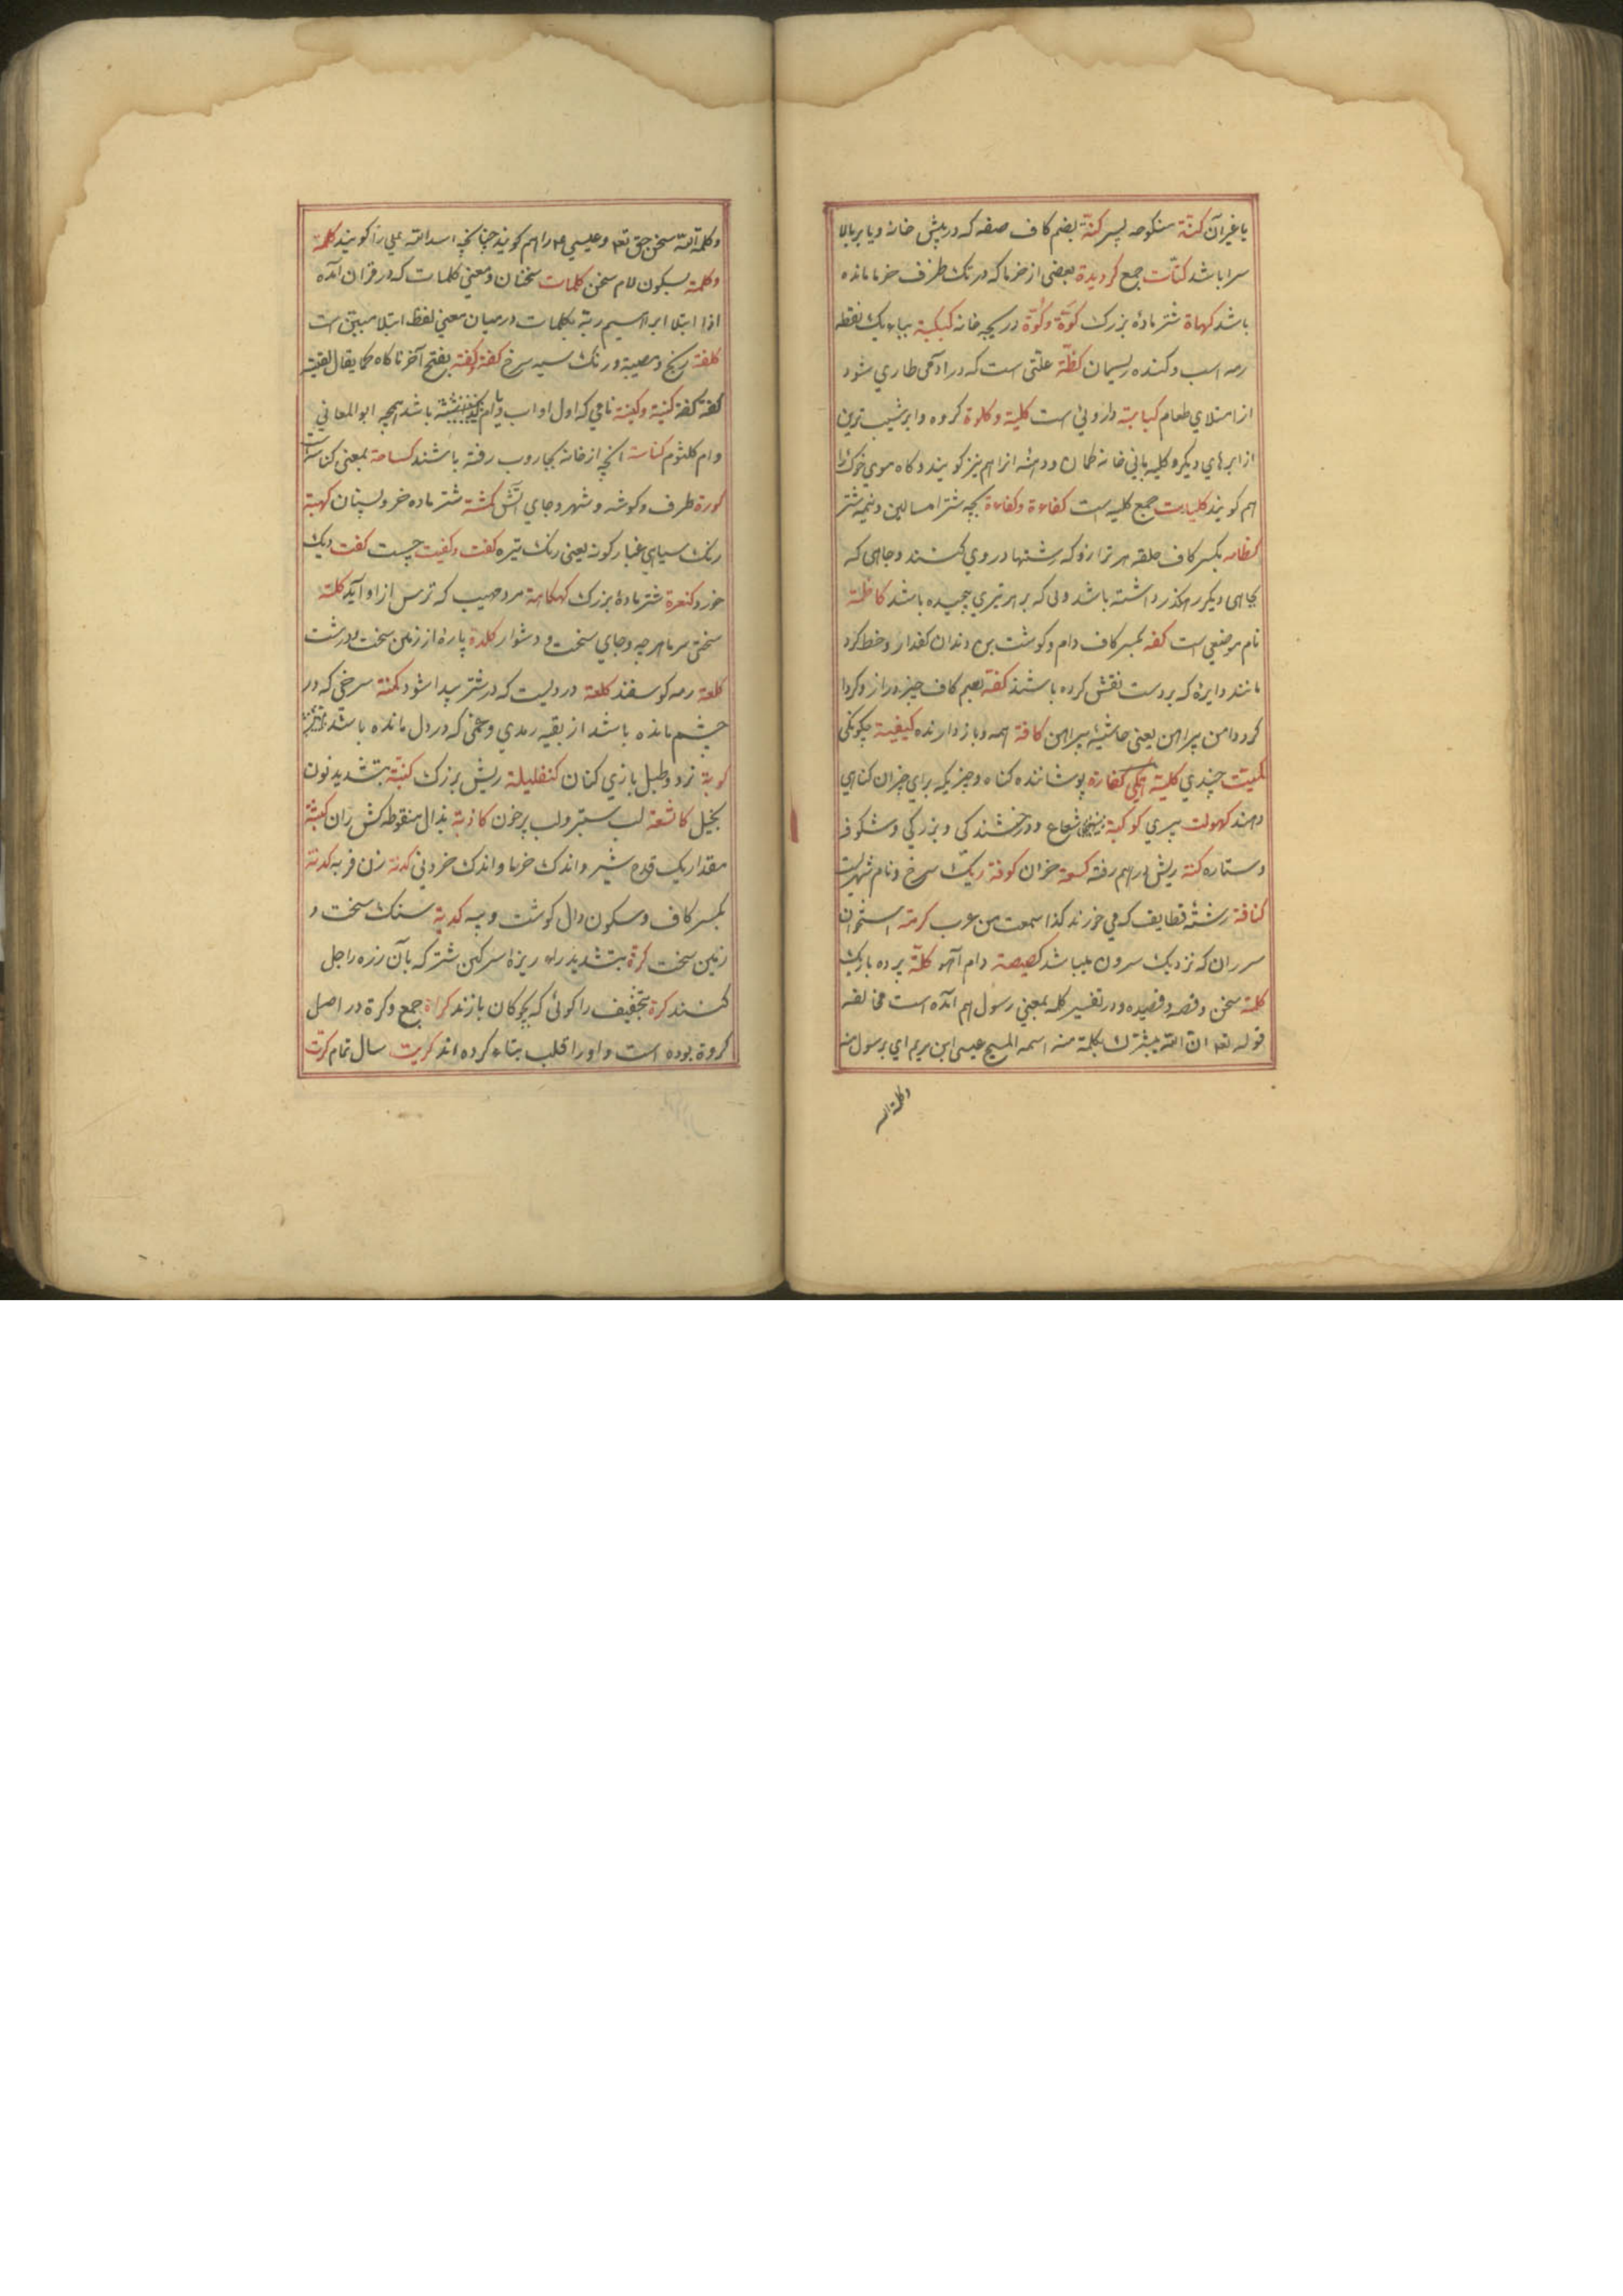 یا غیر آن کنّة منکوحه پسر کنّة بضم کاف صفه که در پیش خانه و یا بر بالا
سرا باشد کنّات جمع کردیدة بعضی از خرما که در تک ظرف خرما مانده
باشد کهاة شتر مادهٔ بزرک کَوّة و کُوّة دریچه خانه کبکبة بباء یک نقطه
رمه اسب و کنده ریسمان کظّة علّتی است که در آدمی طاری شود
از امتلای طعام کبابة داروئی است کلیة و کلوة کرده و ابر شیب ترین
از ابرهای دیکر و کلیه بانی خانه کمان و دمشه انرا هم نیز کویند و کاه موی خوک را
هم کویند کلیات جمع کلیه است کفاءة وکفاءة بچه شتر امسالین و نیمه شتر
کظامه بکسر کاف حلقه سر ترازو که رشتها در وی کشند و چاهی که
بچاهی دیکر رهکذر داشته باشد و پی که بر سر تیری پیچیده باشد کاظمة
نام موضعی است کفه بکسر کاف دام و کوشت بن دندان کفدار و خط کرد
مانند دایرهٔ که بر دست نقش کرده باشند کفّه بضم کاف چیزه دراز و کردا
کرد دامن پیراهن یعنی حاشیهٔ پیراهن کافة همه و باز دارنده کیفیة چکونکی
کمیّت چندی کلیّة همکی کفارة پوشاننده کناه و چیزیکه برای جبران کناهی
دهند کهولت پیری کوکبة شعاع و درخشندکی و بزرکی و شکوفه
و ستاره کنة ریش درهم رفته کسعة خران کوفة ریک سرخ و نام شهریست
کنافة رشتهٔ قطایف که می خورند کذا سمعت من عرب کرمة استخوان
سر ران که نزدیک سرون میباشد کصیصة دام آهو کلّة پرده باریک
کلمة سخن و قصه و قصیده و در تفسیر کلمه بمعنی رسول هم آمده است فی
قوله تعه ان الله یبشرک بکلمة منه اسمه المسیح عیسی ابن مریم ای برسول منه
وکلمة الله
وکلمة الله سخن حق تعه و عیسی ع را هم کویند چنانکه اسد الله علی را کویند کلمة
وکلمة بسکون لام سخن کلمات سخنان و معنی کلمات که در قران آمده
اذا ابتلا ابراهیم ربّه بکلمات در میان معنی لفظ ابتلا مبیّن است
کلفة رنج و مصیبة و رنک سیه سرخ کفة کفة بفتح آخر ناکاه کما یقال لقیته
کفة کفة کنیة و کنیة نامی که اول او اب و یا ام باشد همچو ابو المعانی
و ام کلثوم کناسة انچه از خانه بجاروب رفته باشند کساحة بمعنی کناسه است
کورة طرف و کوشه و شهر و جای آتش کمشة شتر ماده خرد پستان کهبة
رنک سیاهی غبار کونه یعنی رنک تیره کفت و کفیت چست کفت دیک
خورد کنعرة شتر مادهٔ بزرک کهکاهة مرد مهیب که ترس از او آید کلبة
سختی سرما هر چه و جای سخت و دشوار کلدة پارهٔ از زمین سخت و درشت
کلعة رمه کوسفند کلعة دردیست که در شتر پیدا شود کمنة سرخی که در
چشم مانده باشد از بقیه رمدی و غمی که در دل مانده باشد
کوبة نرد و طبل بازی کنان کنفلیلة ریش بزرک کنّبة بتشدید نون
بخیل کاثعة لب ستبر و لب پرخون کاذة بذال منقوطه کش ران کثبة
مقدار یک قدح شیر و اندک خرما و اندک خردنی کدنة زن فربه کدنة
بکسر کاف و سکون دال کوشت و پیه کدیة سنک سخت و
زمین سخت کرّة بتشدید راء ریزهٔ سرکین شتر که بآن زره را جل
کنند کرة بتخفیف را کوئی که بچوکان بازند کراة جمع و کرة در اصل
کروة بوده است و او را قلب بتاء کرده اند کریت سال تمام کرت